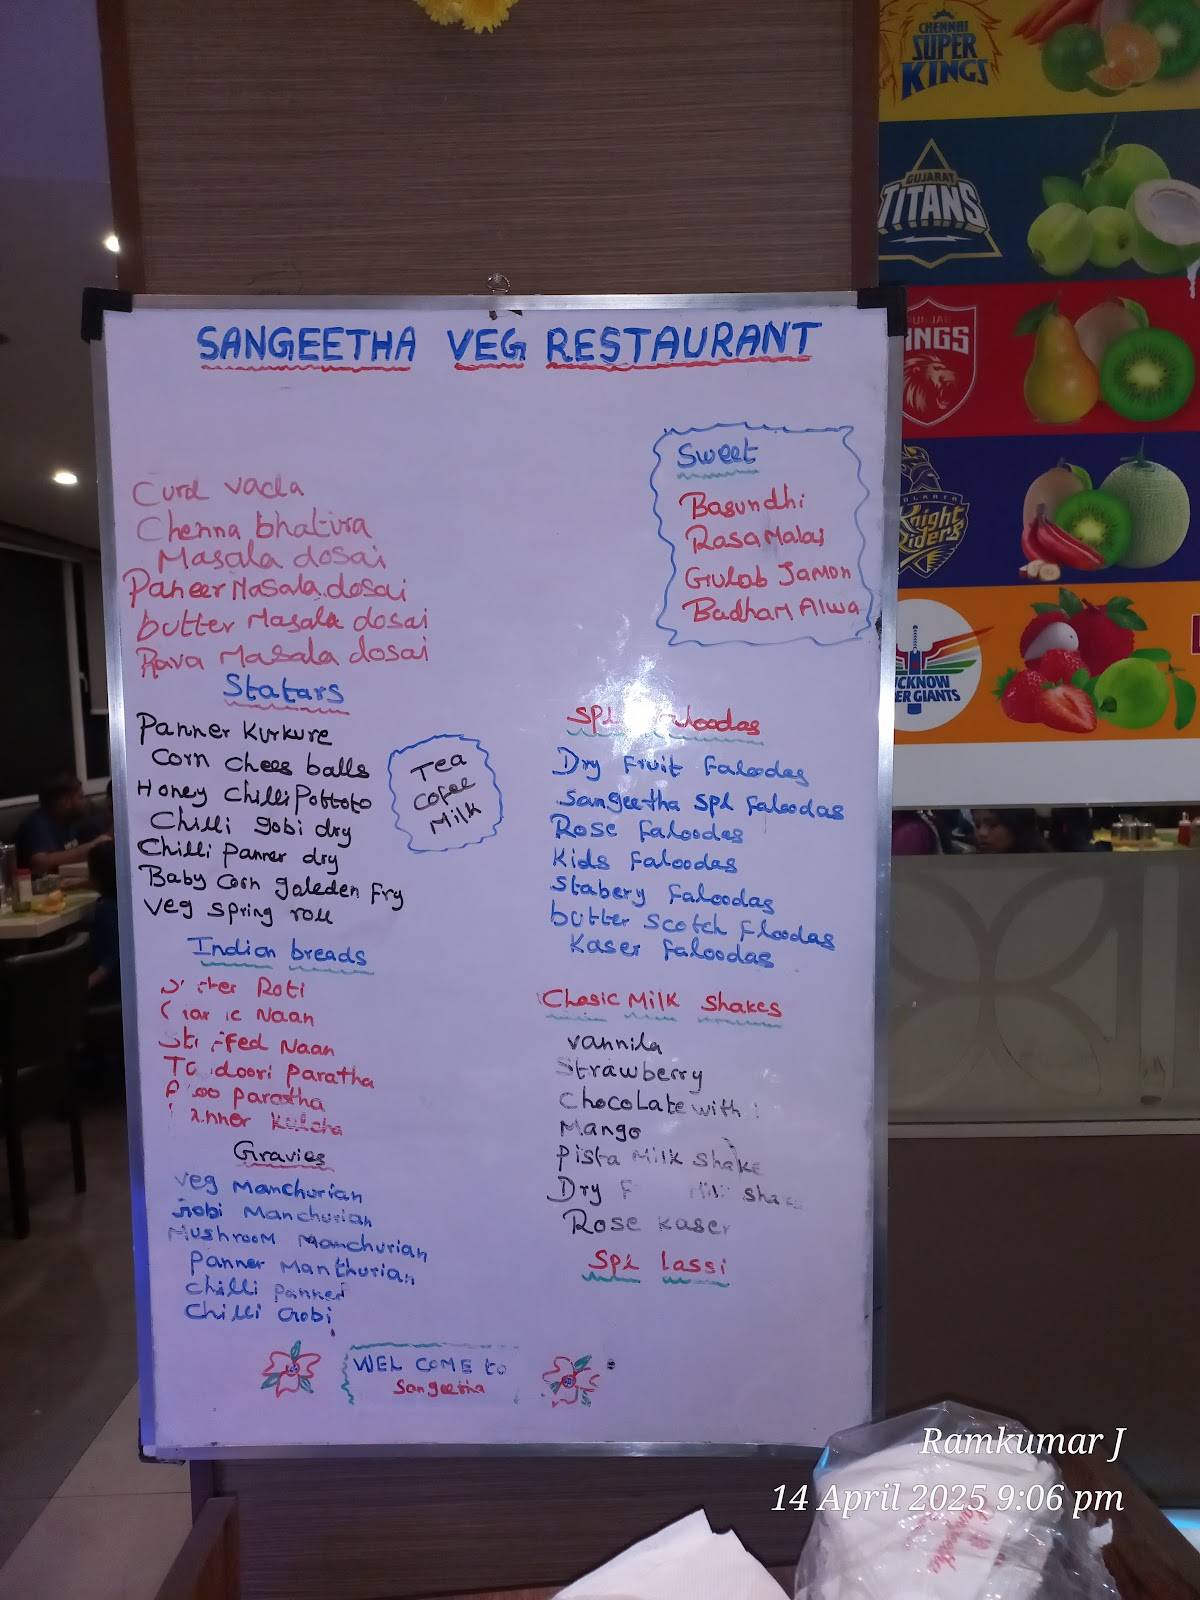 SANGEETHA VEG RESTAURANT
Curd vada
Chenna bhatura
Masala dosai
Paneer Masala dosai
butter Masala dosai
Rava Masala dosai
Sweet
Basundhi
Rasa Malai
Gulab Jamon
Badham Alwa
Statars
Panner Kurkure
Corn chees balls
Honey Chilli Pottoto
Chilli gobi dry
Chilli Panner dry
Baby Corn goleden fry
Veg Spring roll
Tea
Cofee
Milk
Indian breads
Roti
Naan
Naan
Paratha
Paratha
Kulcha
Gravies
Veg Manchurian
Gobi Manchurian
Mushroom Manchurian
Panner Manthurian
Chilli Panner
Chilli Gobi
SPL Faloodas
Dry Fruit Faloodas
Sangeetha SPL Faloodas
Rose Faloodas
Kids Faloodas
Stabery Faloodas
butter Scotch Floodas
Kaser Faloodas
Clasic Milk Shakes
Vannila
Strawberry
Chocolate with
Mango
Pista Milk Shake
Dry
Rose Kaser
SPL lassi
WEL COME to
Sangeetha
CHENNAI
SUPER
KINGS
GUJARAT
TITANS
Knight
Riders
Ramkumar J
14 April 2025 9:06 pm